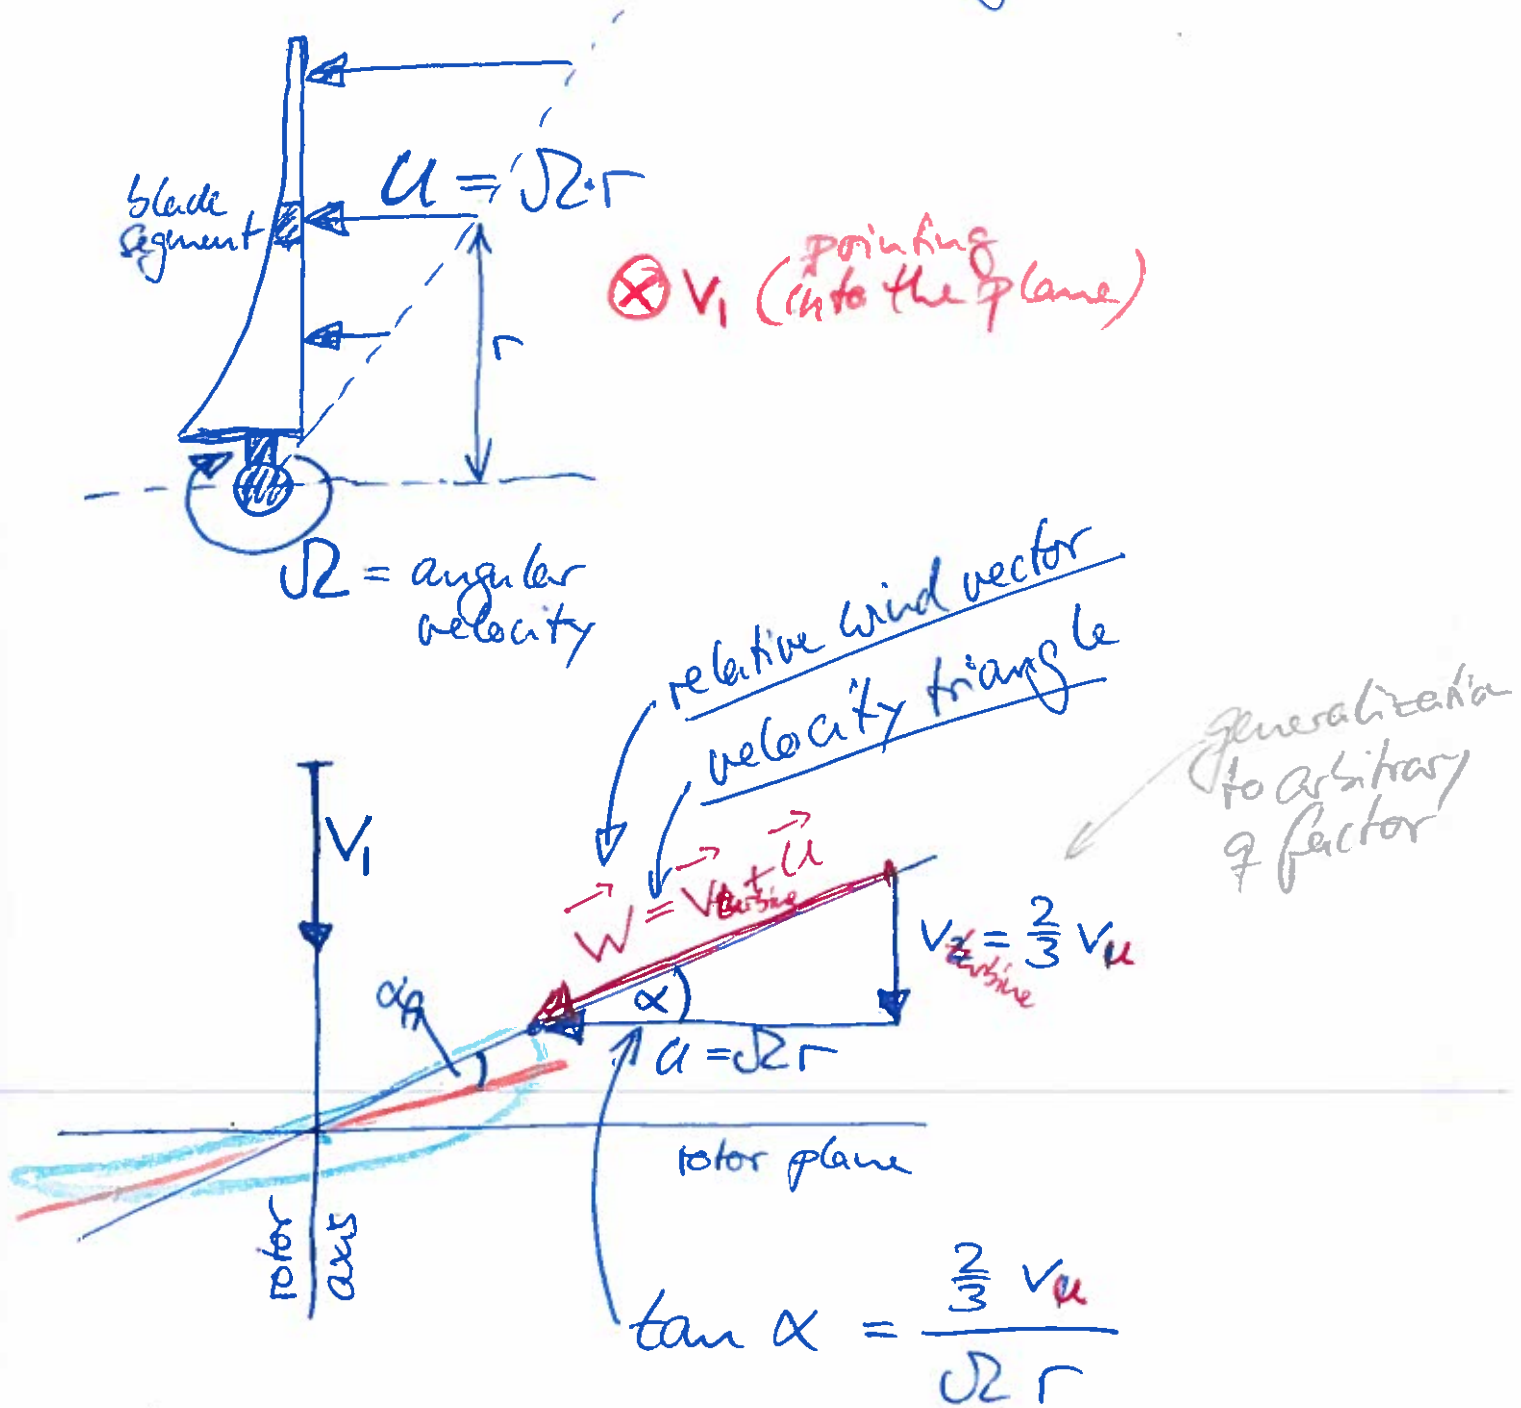 u = Ω·r
blade
segment
⊗ V₁ (pointing
into the plane)
r
Ω = angular
velocity
relative wind vector
velocity triangle
generalization
to arbitrary
factor
V₁
W = V turbine + u
V turbine = 2/3 Vu
α
αA
u = Ωr
rotor plane
rotor
axis
tan α = 2/3 Vu / Ω r